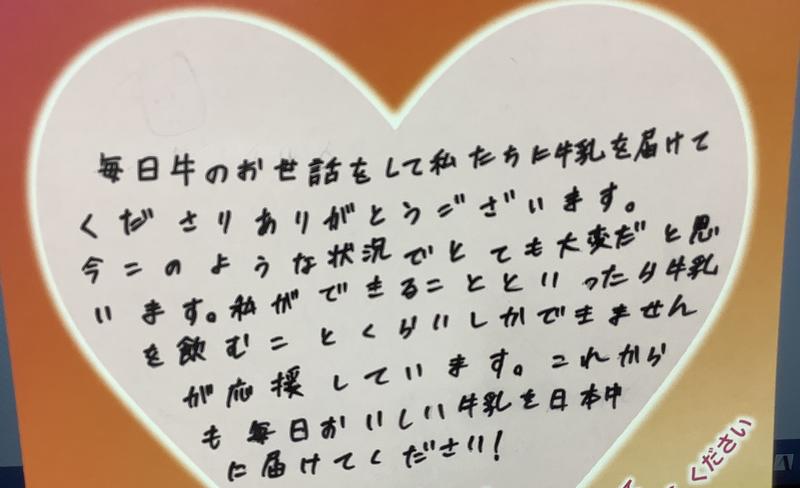 毎日牛のお世話をして私たちに牛乳を届けて
くださりありがとうございます。
今このような状況でとても大変だと思
います。私ができることといったら牛乳
を飲むことくらいしかできません
が応援しています。これから
も毎日おいしい牛乳を日本中
に届けてください!
ください